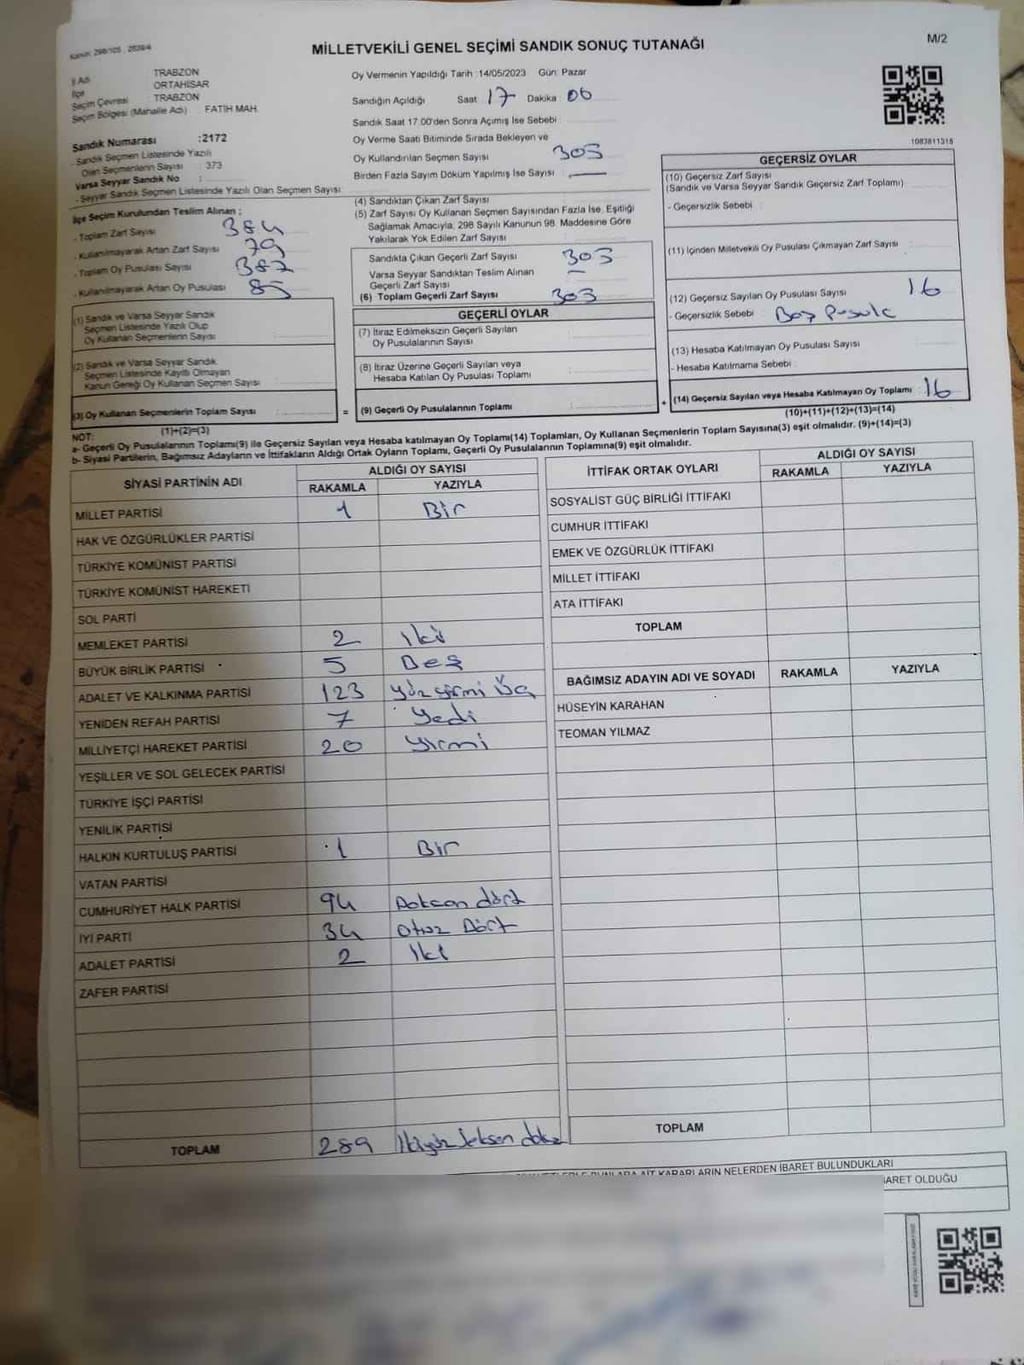 Kanun: 298/105 : 2839/4
MİLLETVEKİLİ GENEL SEÇİMİ SANDIK SONUÇ TUTANAĞI
M/2
İl Adı TRABZON
İlçe ORTAHİSAR
Seçim Çevresi TRABZON
Seçim Bölgesi (Mahalle Adı) FATİH MAH.
Oy Vermenin Yapıldığı Tarih :14/05/2023 Gün: Pazar
Sandığın Açıldığı Saat 17 Dakika 06
Sandık Saat 17:00'den Sonra Açımış İse Sebebi
1083811316
Sandık Numarası :2172
- Sandık Seçmen Listesinde Yazılı
Olan Seçmenlerin Sayısı : 373
Varsa Seyyar Sandık No :
- Seyyar Sandık Seçmen Listesinde Yazılı Olan Seçmen Sayısı
Oy Verme Saati Bitiminde Sırada Bekleyen ve
Oy Kullandırılan Seçmen Sayısı 305
Birden Fazla Sayım Döküm Yapılmış İse Sayısı —
İlçe Seçim Kurulundan Teslim Alınan :
- Toplam Zarf Sayısı 384
- Kullanılmayarak Artan Zarf Sayısı 79
- Toplam Oy Pusulası Sayısı 387
- Kullanılmayarak Artan Oy Pusulası 85
(1) Sandık ve Varsa Seyyar Sandık
Seçmen Listesinde Yazılı Olup
Oy Kullanan Seçmenlerin Sayısı
(2) Sandık ve Varsa Seyyar Sandık
Seçmen Listesinde Kayıtlı Olmayan
Kanun Gereği Oy Kullanan Seçmen Sayısı
(3) Oy Kullanan Seçmenlerin Toplam Sayısı
(1)+(2)=(3)
(4) Sandıktan Çıkan Zarf Sayısı
(5) Zarf Sayısı Oy Kullanan Seçmen Sayısından Fazla İse, Eşitliği
Sağlamak Amacıyla, 298 Sayılı Kanunun 98. Maddesine Göre
Yakılarak Yok Edilen Zarf Sayısı
Sandıkta Çıkan Geçerli Zarf Sayısı 305
Varsa Seyyar Sandıktan Teslim Alınan
Geçerli Zarf Sayısı —
(6) Toplam Geçerli Zarf Sayısı 303
GEÇERLİ OYLAR
(7) İtiraz Edilmeksizin Geçerli Sayılan
Oy Pusulalarının Sayısı
(8) İtiraz Üzerine Geçerli Sayılan veya
Hesaba Katılan Oy Pusulası Toplamı
= (9) Geçerli Oy Pusulalarının Toplamı
GEÇERSİZ OYLAR
(10) Geçersiz Zarf Sayısı
(Sandık ve Varsa Seyyar Sandık Geçersiz Zarf Toplamı)
- Geçersizlik Sebebi :
(11) İçinden Milletvekili Oy Pusulası Çıkmayan Zarf Sayısı
(12) Geçersiz Sayılan Oy Pusulası Sayısı 16
- Geçersizlik Sebebi : Boş Pusula
(13) Hesaba Katılmayan Oy Pusulası Sayısı
- Hesaba Katılmama Sebebi :
+ (14) Geçersiz Sayılan veya Hesaba Katılmayan Oy Toplamı 16
(10)+(11)+(12)+(13)=(14)
NOT:
a- Geçerli Oy Pusulalarının Toplamı(9) ile Geçersiz Sayılan veya Hesaba katılmayan Oy Toplamı(14) Toplamları, Oy Kullanan Seçmenlerin Toplam Sayısına(3) eşit olmalıdır. (9)+(14)=(3)
b- Siyasi Partilerin, Bağımsız Adayların ve İttifakların Aldığı Ortak Oyların Toplamı, Geçerli Oy Pusulalarının Toplamına(9) eşit olmalıdır.
SİYASİ PARTİNİN ADI ALDIĞI OY SAYISI
RAKAMLA YAZIYLA
MİLLET PARTİSİ 1 Bir
HAK VE ÖZGÜRLÜKLER PARTİSİ
TÜRKİYE KOMÜNİST PARTİSİ
TÜRKİYE KOMÜNİST HAREKETİ
SOL PARTİ
MEMLEKET PARTİSİ 2 iki
BÜYÜK BİRLİK PARTİSİ 5 Beş
ADALET VE KALKINMA PARTİSİ 123 Yüz yirmi Üç
YENİDEN REFAH PARTİSİ 7 Yedi
MİLLİYETÇİ HAREKET PARTİSİ 20 Yirmi
YEŞİLLER VE SOL GELECEK PARTİSİ
TÜRKİYE İŞÇİ PARTİSİ
YENİLİK PARTİSİ
HALKIN KURTULUŞ PARTİSİ 1 Bir
VATAN PARTİSİ
CUMHURİYET HALK PARTİSİ 94 Doksan dört
İYİ PARTİ 34 Otuz Dört
ADALET PARTİSİ 2 iki
ZAFER PARTİSİ
TOPLAM 289 İkiyüz seksen dokuz
İTTİFAK ORTAK OYLARI ALDIĞI OY SAYISI
RAKAMLA YAZIYLA
SOSYALİST GÜÇ BİRLİĞİ İTTİFAKI
CUMHUR İTTİFAKI
EMEK VE ÖZGÜRLÜK İTTİFAKI
MİLLET İTTİFAKI
ATA İTTİFAKI
TOPLAM
BAĞIMSIZ ADAYIN ADI VE SOYADI RAKAMLA YAZIYLA
HÜSEYİN KARAHAN
TEOMAN YILMAZ
TOPLAM
BUNLARA AİT KARARLARIN NELERDEN İBARET BULUNDUKLARI
İBARET OLDUĞU